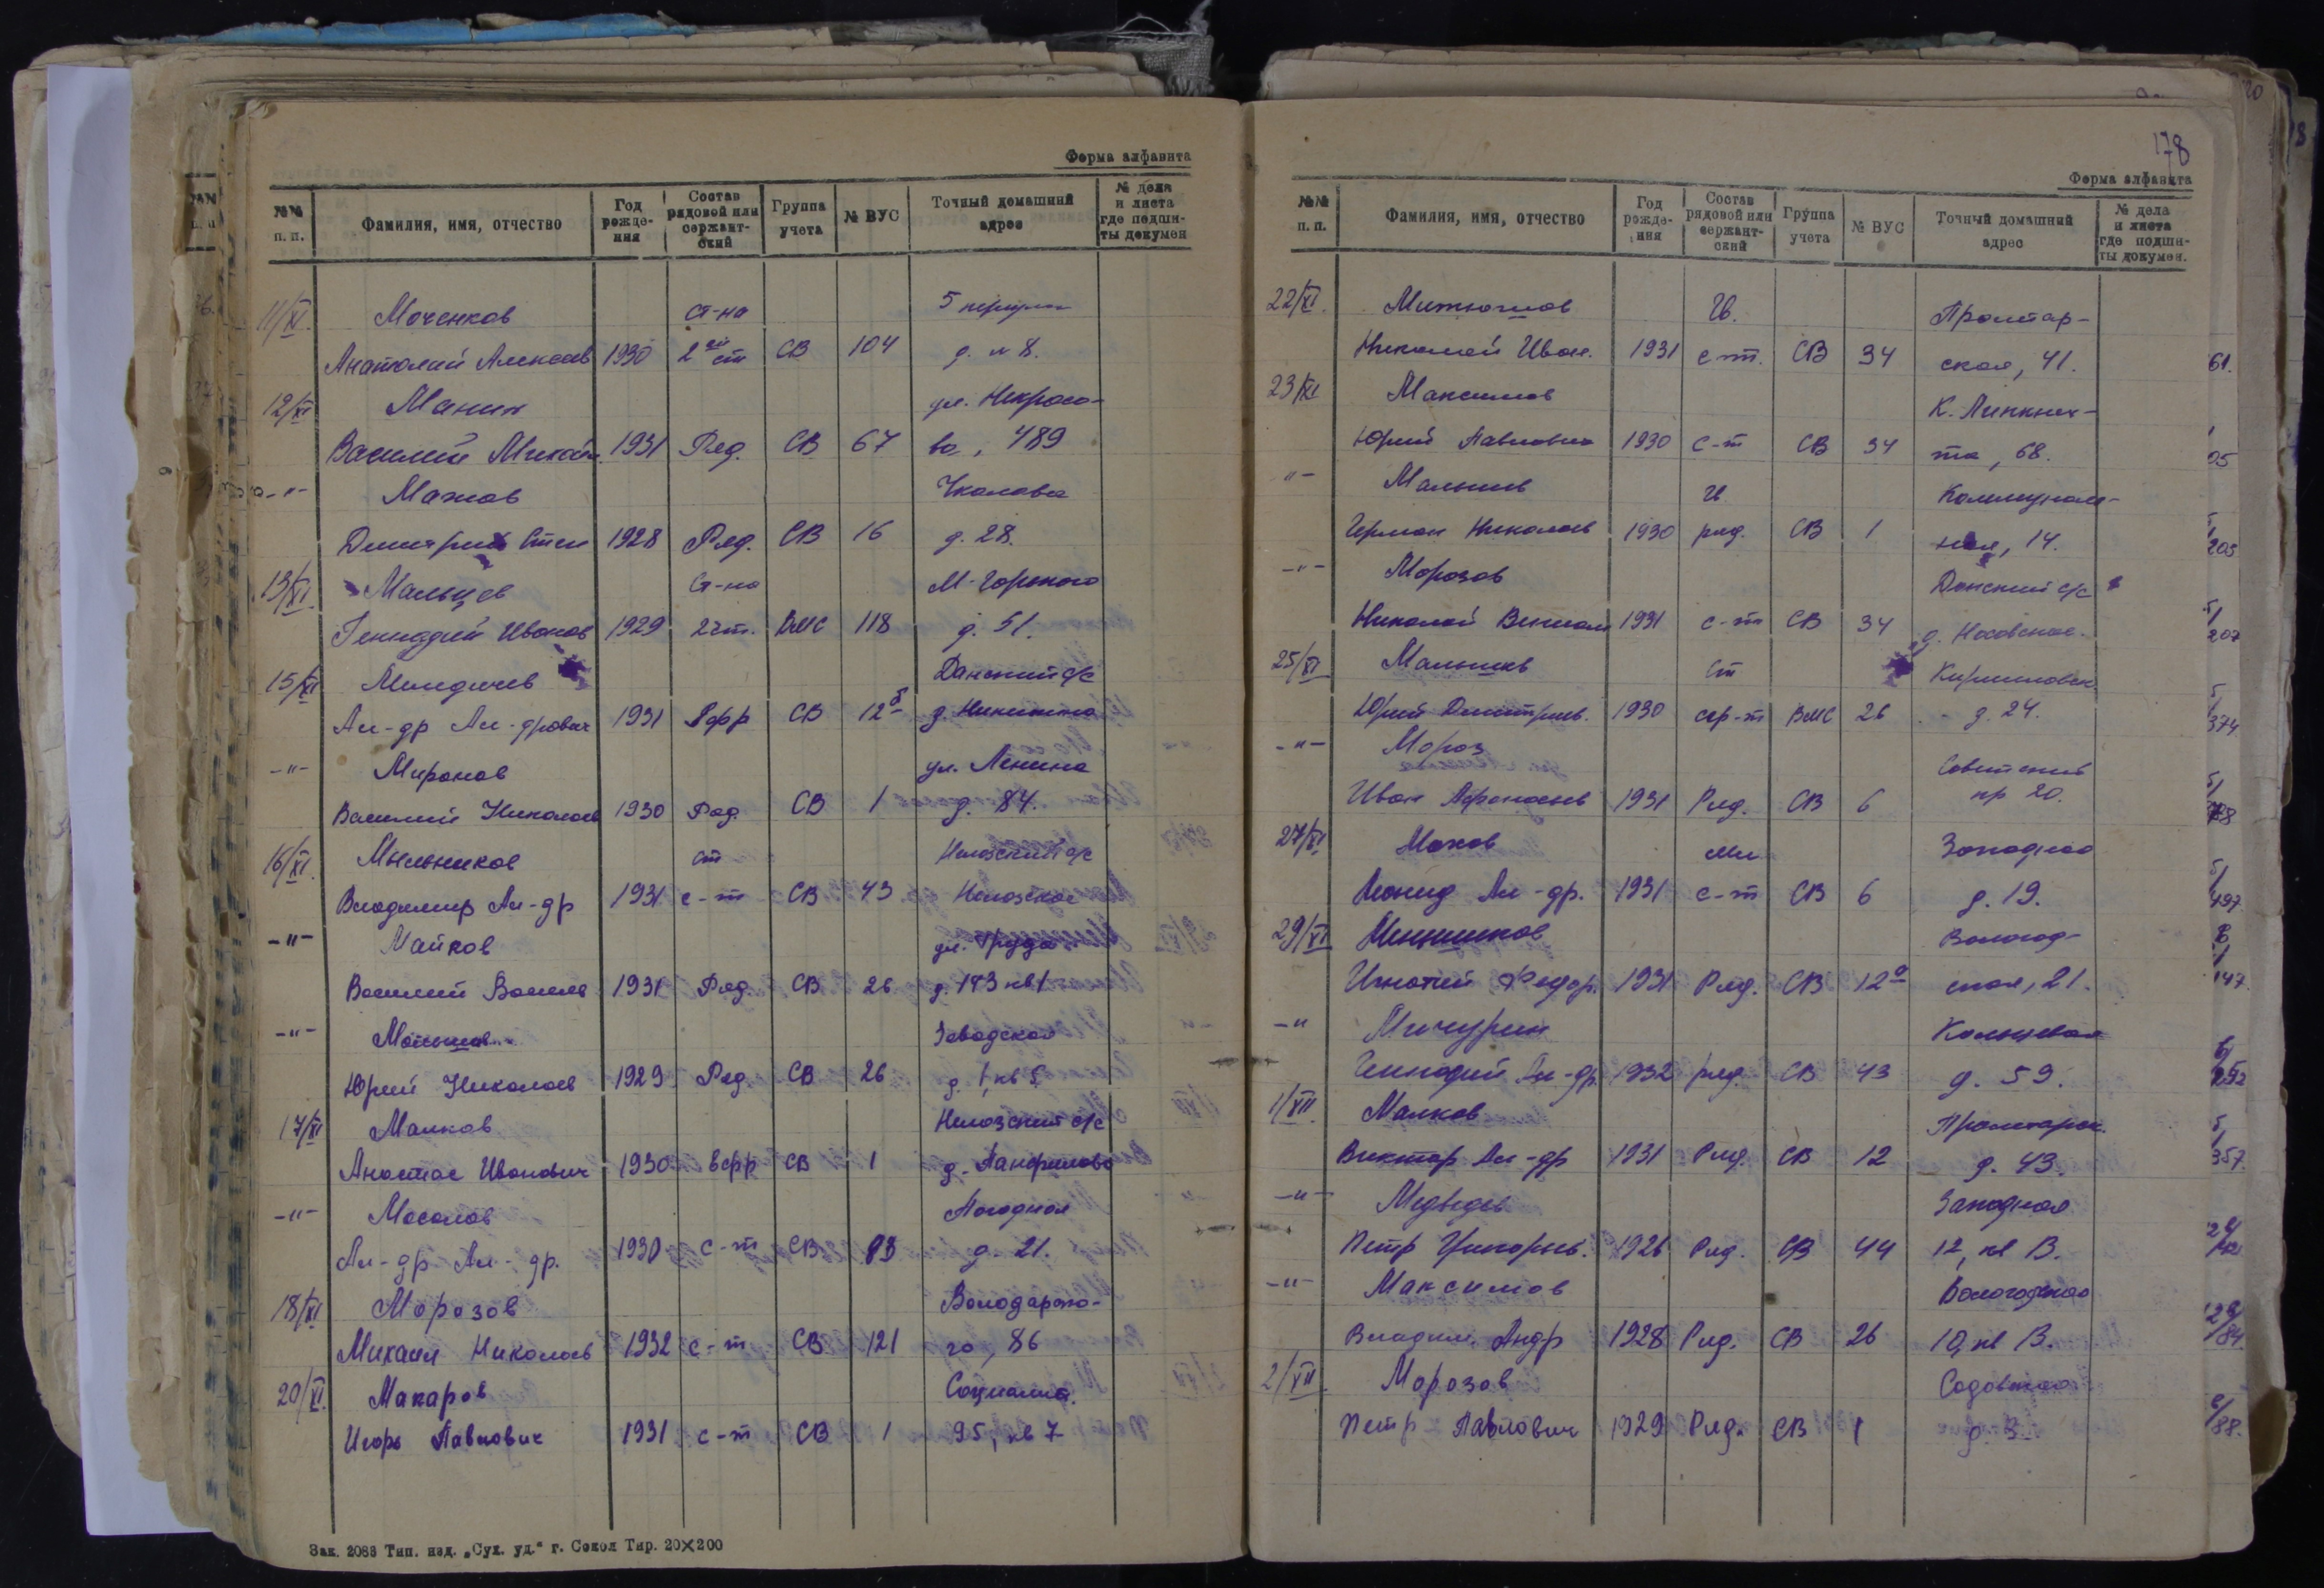 Форма алфавита
№№ п. п. Фамилия, имя, отчество Год рожде-ния Состав рядовой или сержант-ский Группа учета № ВУС Точный домашний адрес № дела и листа где подши-ты докумен
11/XI. Моченков ст-на
Анатолий Алексеев 1930 2 ст СВ 104 д. 8.
12/XI Манин ул. Некрасо-
Василий Михайл. 1931 Ряд. СВ 67 ва, 489
-"- Махов Чкалова
Дмитрий Степ 1928 Ряд. СВ 16 д. 28.
13/XI. Мальцев Ст-на М-Горького
Геннадий Иванов 1929 2 ст. ВМС 118 д. 51.
15/XI Данский с/с
Ал-др Ал-дрович 1931 СВ 12б д. Никитино
-"- Миронов ул. Ленина
Василий Николаев 1930 Ряд. СВ 1 д. 84.
16/XI. Мыльников ст Нелазский с/с
Владимир Ал-др 1931 с-т СВ 43 Нелазское
-"- Майков ул. Труда
Василий Василь 1931 Ряд. СВ 26 д. 193 кв 1
-"- Заводская
Юрий Николаев 1929 Ряд. СВ 26 д. 1, кв 5
17/XI Малков Нелазский с/с
Анастас Иванович 1930 ефр СВ 1 д. Панфилово
-"- Масалов
Ал-др Ал-др. 1930 с-т СВ 83 д. 21.
18/XI Морозов Володарско-
Михаил Николаев 1932 с-т СВ 121 го, 86
20/XI. Макаров Социалис.
Игорь Павлович 1931 с-т СВ 1 95, кв 7
Зак. 2083 Тип. изд. „Сух. уд.“ г. Сокол Тир. 20×200
178
Форма алфавита
№№ п. п. Фамилия, имя, отчество Год рожде-ния Состав рядовой или сержант-ский Группа учета № ВУС Точный домашний адрес № дела и листа где подши-ты докумен.
22/XI. Митюшов Гв. Пролетар-
Николай Иван. 1931 с-т. СВ 34 ская, 41.
23/XI Максимов К. Либкнех-
Юрий Павлович 1930 с-т СВ 34 та, 68.
-"- Малышев Гв Коммуналь-
Герман Николаев 1930 ряд. СВ 1 ная, 14.
-"- Морозов Данский с/с
Николай 1931 с-т СВ 34 д. Носовское.
25/XI Малышев Ст Кирилловск.
Юрий Дмитриев. 1930 сер-т ВМС 26 д. 24.
-"- Мороз Советский
Иван Афанасьев 1931 Ряд. СВ 6 пр 20.
27/XI Махов мл Западная
Леонид Ал-др. 1931 с-т СВ 6 д. 19.
29/XI Меньшиков Вологод-
Игнатий Федор. 1931 Ряд. СВ 12а ская, 21.
-"- Мичурин Кольцевая
Геннадий Ал-др 1932 ряд. СВ 43 д. 59.
1/XII. Малков Пролетарск.
Виктор Ал-др 1931 Ряд. СВ 12 д. 43.
-"- Медведев Западная
Петр Григорьев. 1926 Ряд. СВ 44 12, кв 13.
-"- Максимов Вологодская
Владим. Андр 1928 Ряд. СВ 26 10, кв 13.
2/XII Морозов Садовая
Петр Павлович 1929 Ряд. СВ 1 д. 3.